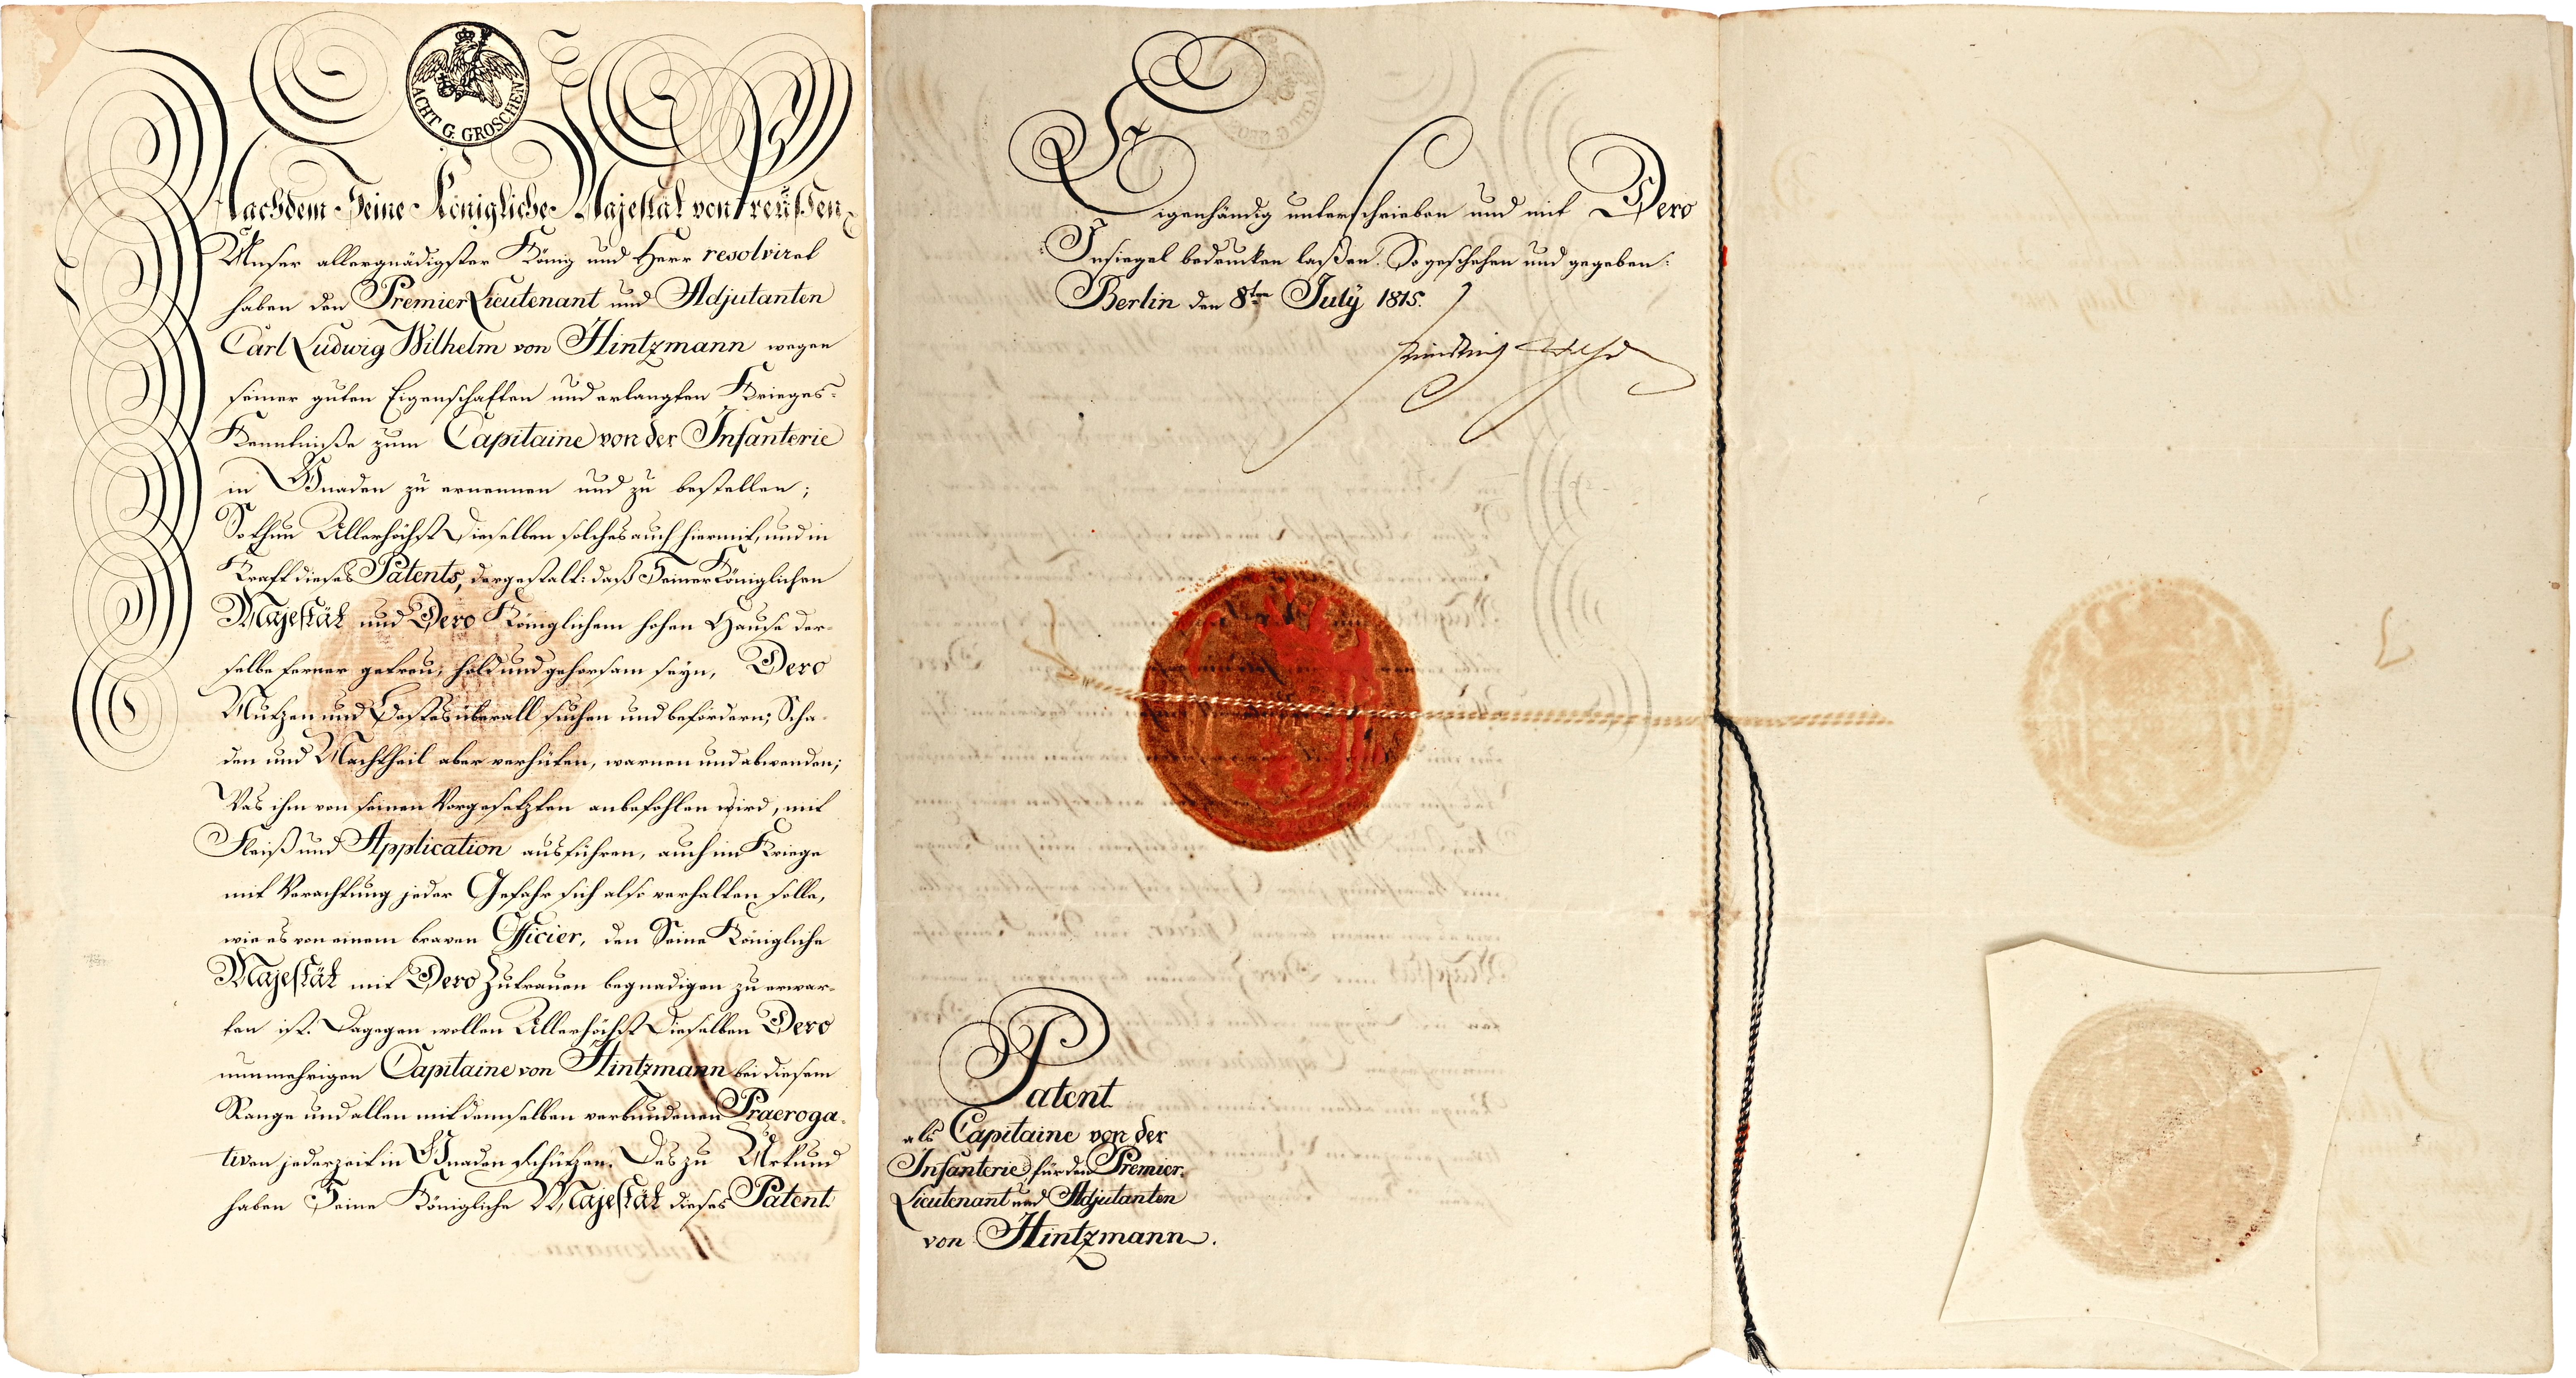 ACHT G. GROSCHEN
Nachdem Seine Königliche Majestät von Preußen,
Unser allergnädigster König und Herr resolviret
haben den Premier Lieutenant und Adjutanten
Carl Ludwig Wilhelm von Hintzmann wegen
seiner guten Eigenschaften und erlangten Krieges-
Kenntniße zum Capitaine von der Infanterie
in Gnaden zu ernennen und zu bestellen;
So thun Allerhöchst Dieselben solches auch hiermit, und in
Kraft dieses Patents, dergestalt: daß Seiner Königlichen
Majestät und Dero Königlichem hohen Hause der-
selbe ferner getreu, hold und gehorsam seyn, Dero
Nutzen und Bestes überall suchen und befördern; Scha-
den und Nachtheil aber verhüten, warnen und abwenden;
Was ihm von seinen Vorgesetzten anbefohlen wird, mit
Fleiß und Application ausführen, auch im Kriege
mit Verachtung jeder Gefahr sich also verhalten solle,
wie es von einem braven Officier, den Seine Königliche
Majestät mit Dero Zutrauen begnadigen zu erwar-
ten ist. Dagegen wollen Allerhöchst Dieselben Dero
nunmehrigen Capitaine von Hintzmann bei diesem
Range und allen mit demselben verbundenen Praeroga-
tiven jederzeit in Gnaden schützen. Des zu Urkund
haben Seine Königliche Majestät dieses Patent
Eigenhändig unterschrieben und mit Dero
Insiegel bedrucken laßen. So geschehen und gegeben:
Berlin den 8ten July 1815.
Friedrich Wilhelm
Patent
als Capitaine von der
Infanterie für den Premier-
Lieutenant und Adjutanten
von Hintzmann.